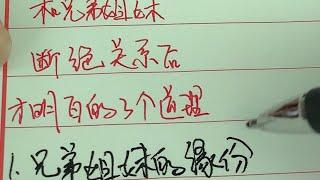 和兄弟姐妹
断绝关系后
才明白的3个道理
1.兄弟姐妹的缘份